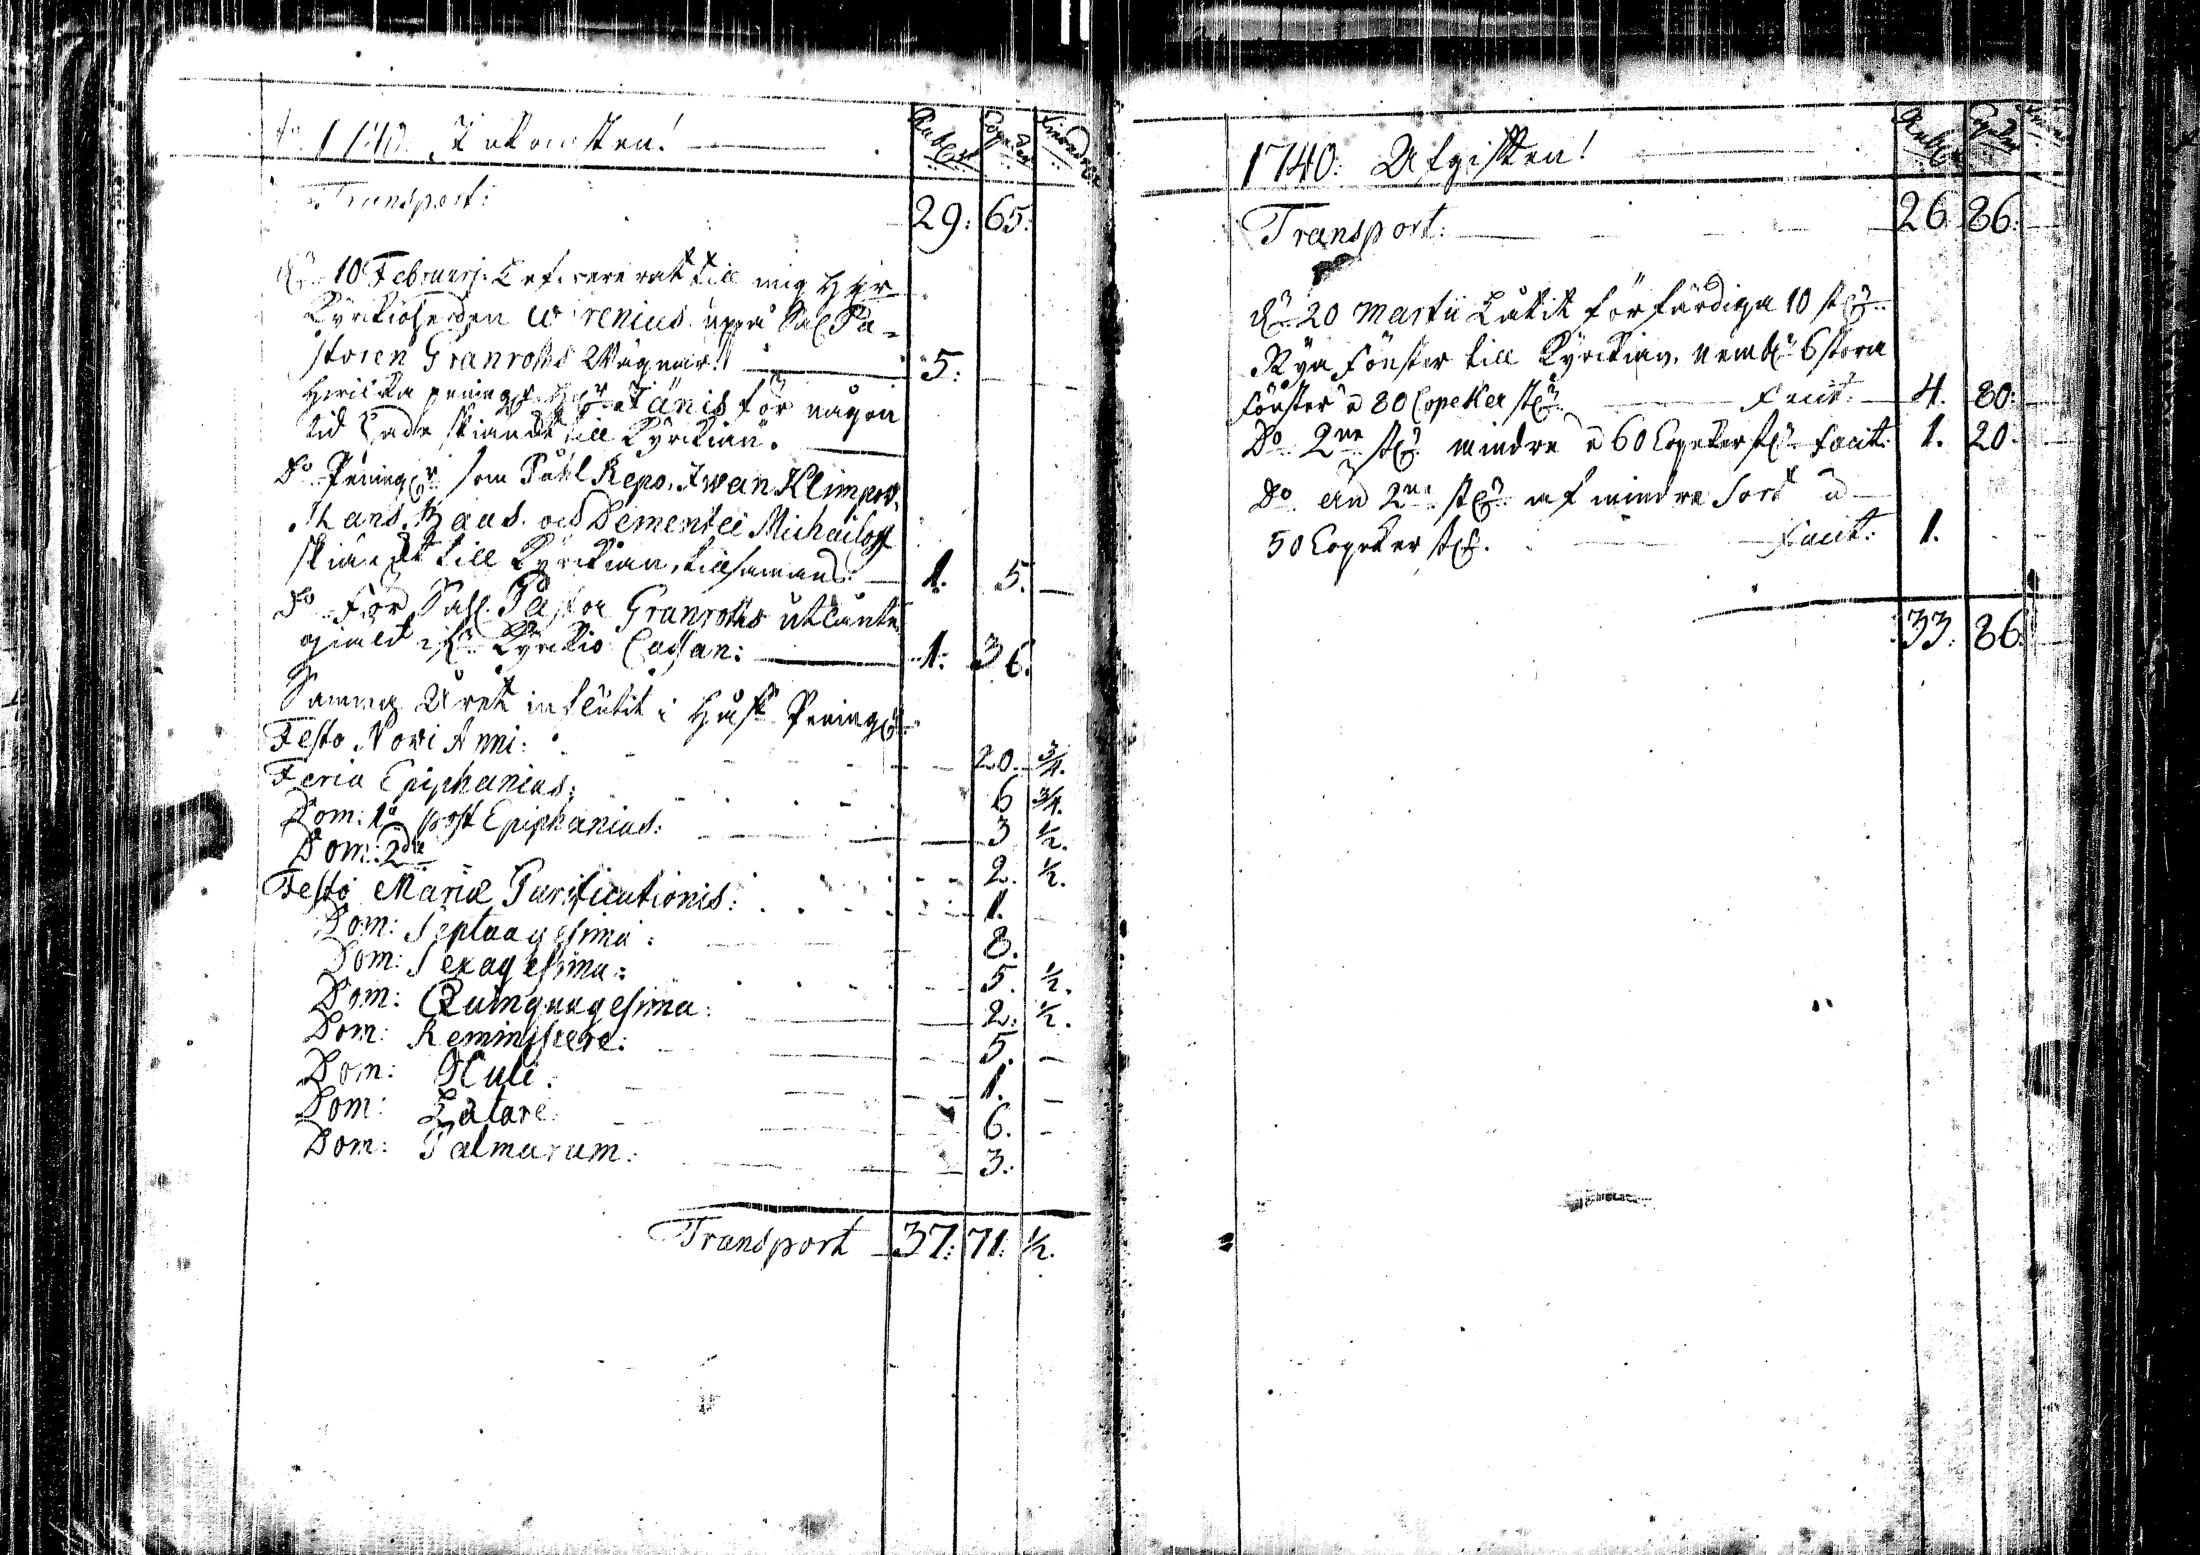 Ao 1740. Inkomsten! Rubler Copeker
Transport: 29: 65:
10 Februarj. Lefwererat till mig Herr
Kyrkioherden Wirenius uppå Sal Pa-
storen Granroths Wägnar. 5:
hwilka peningr Herr Jänis för någon
tid hade skiänckt till Kyrkian.
Do Peningar som Påhl Repo, Iwan Klimpow,
Hans Haus och Dementei Michailoff
skiänckt till Kyrkian, tillsamans: 1. 5.
Do För Sahl. Pastor Granroths utlånte
i Kyrkio Cassan: 1: 36.
Samma Året influtit i Håfs Peningar
Festo Novi Anni: 20. 3/4.
Feria Epiphanias: 6 3/4.
Dom: 1a post Epiphanias: 3 1/2.
Dom: 2da 2. 1/2.
Festo Mariæ Purificationis: 1.
Dom: Septuagesima: 8.
Dom: Sexagesima: 5. 1/2.
Dom: Quinquagesima: 2. 1/2.
Dom: Reminiscere: 5. -
Dom: Oculi. 1. -
Dom: Lætare. 6. -
Dom: Palmarum: 3.
Transport 37: 71: 1/2.
1740: Utgiften! Rubler Copeker
Transport: 26 86:
den 20 Martii Låtit förfärdiga 10 st
Nya Fönster till Kyrkian, nembl 6 stora
Fönster a 80 Copeker st Facit: 4. 80:
Do 2ne st mindre a 60 Copeker st Facit: 1. 20.
Do än 2ne st af mindre sort a
50 Copeker st. Facit: 1.
33. 86.